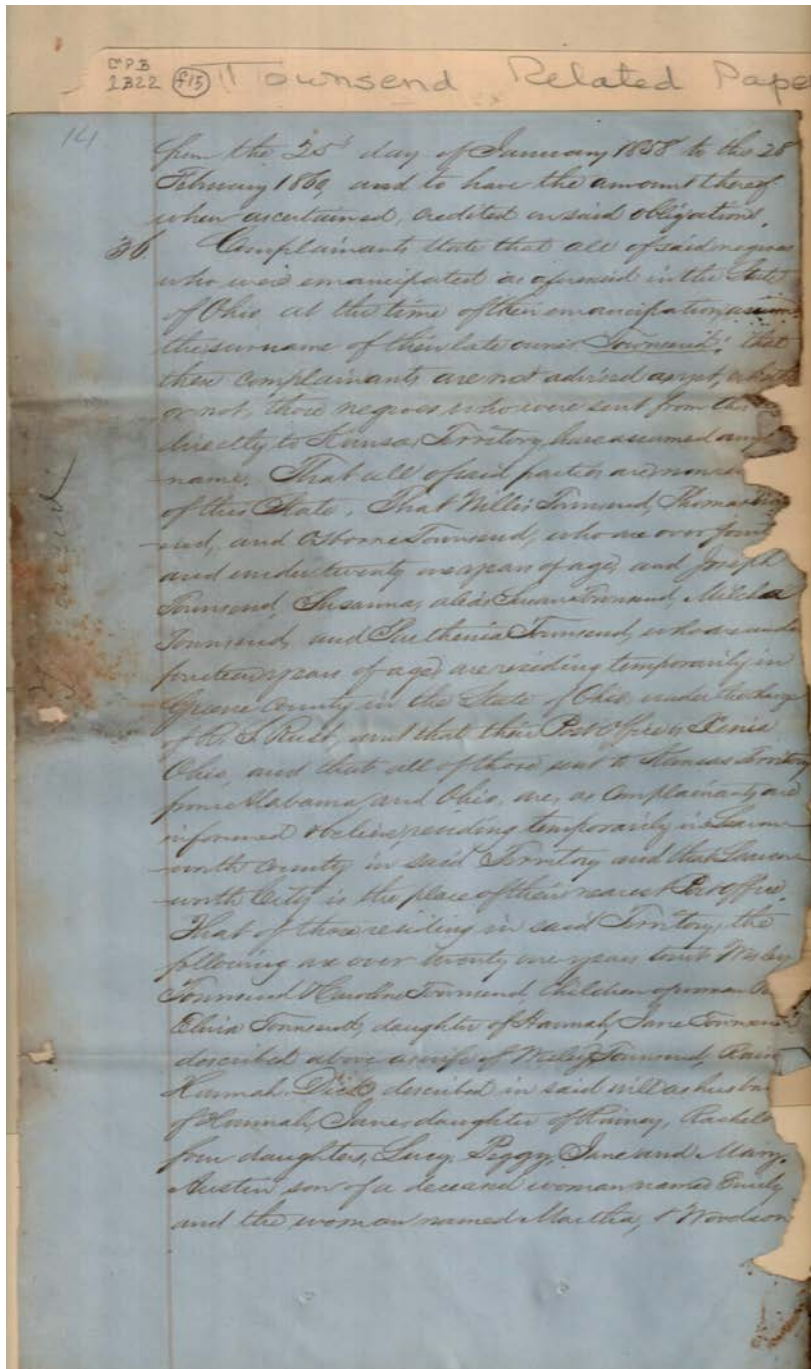 CPB
2322 f15 Townsend Related Pape
14
from the 25th day of January 1858 to the 28
February 1860, and to have the amount thereof
when ascertained, credited on said obligations.
36 Complainants state that all of said negroes
who were emancipated as aforesaid in the State
of Ohio at the time of their emancipation, assume
the surname of their late owner Townsend; that
these complainants are not advised as yet, wheth
or not, those negroes, who were sent from this
directly to Kansas Territory, have assumed any
name. That all of said parties are nonres
of this State. That Willis Townsend, Thomas
end, and Osborne Townsend, who are over four
and under twenty one years of age, and Joseph
Townsend, Susanna, alias Susan Townsend, Milcha
Townsend, and Parthenia Townsend, who are under
fourteen years of age, are residing temporarily in
Greene County in the State of Ohio, under the charge
of R. S. Rust and that their Post Office is Xenia
Ohio, and that all of those sent to Kansas Territory
from Alabama and Ohio, are, as Complainants are
informed & believe, residing temporarily in Leaven
worth County in said Territory and that Leaven
worth City is the place of their nearest Post Office.
That of those residing in said Territory, the
following are over twenty one years towit Wesley
Townsend & Caroline Townsend, children of woman
Elvira Townsend, daughter of Hannah, Jane Townsend
described above as wife of Wesley Townsend,
Hannah. Dick, described in said will as husba
of Hannah, Jane, daughter of Rainey, Rachels
four daughters, Lucy, Peggy, Jane and Mary.
Austin son of a deceased woman named Emily
and the woman named Martha, & Woodson